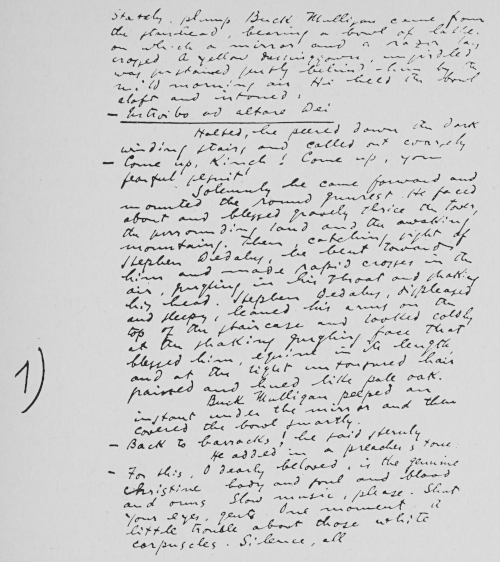 Stately, plump Buck Mulligan came from
the stairhead, bearing a bowl of lather
on which a mirror and a razor lay
crossed. A yellow dressinggown, ungirdled
was sustained gently behind him by the
mild morning air. He held the bowl
aloft and intoned:
— Introibo ad altare Dei
Halted, he peered down the dark
winding stairs and called out coarsely
— Come up, Kinch! Come up, you
fearful jesuit!
Solemnly he came forward and
mounted the round gunrest. He faced
about and blessed gravely thrice the tower,
the surrounding land and the awaking
mountains. Then, catching sight of
Stephen Dedalus, he bent towards
him and made rapid crosses in the
air, gurgling in his throat and shaking
his head. Stephen Dedalus, displeased
and sleepy, leaned his arms on the
top of the staircase and looked coldly
at the shaking gurgling face that
blessed him, equine in its length
and at the light untonsured hair
grained and hued like pale oak.
Buck Mulligan peeped an
instant under the mirror and then
covered the bowl smartly.
— Back to barracks! he said sternly
He added in a preacher's tone:
— For this, O dearly beloved, is the genuine
Christine body and soul and blood
and ouns. Slow music, please. Shut
your eyes, gents. One moment. A
little trouble about those white
corpuscles. Silence, all
1)